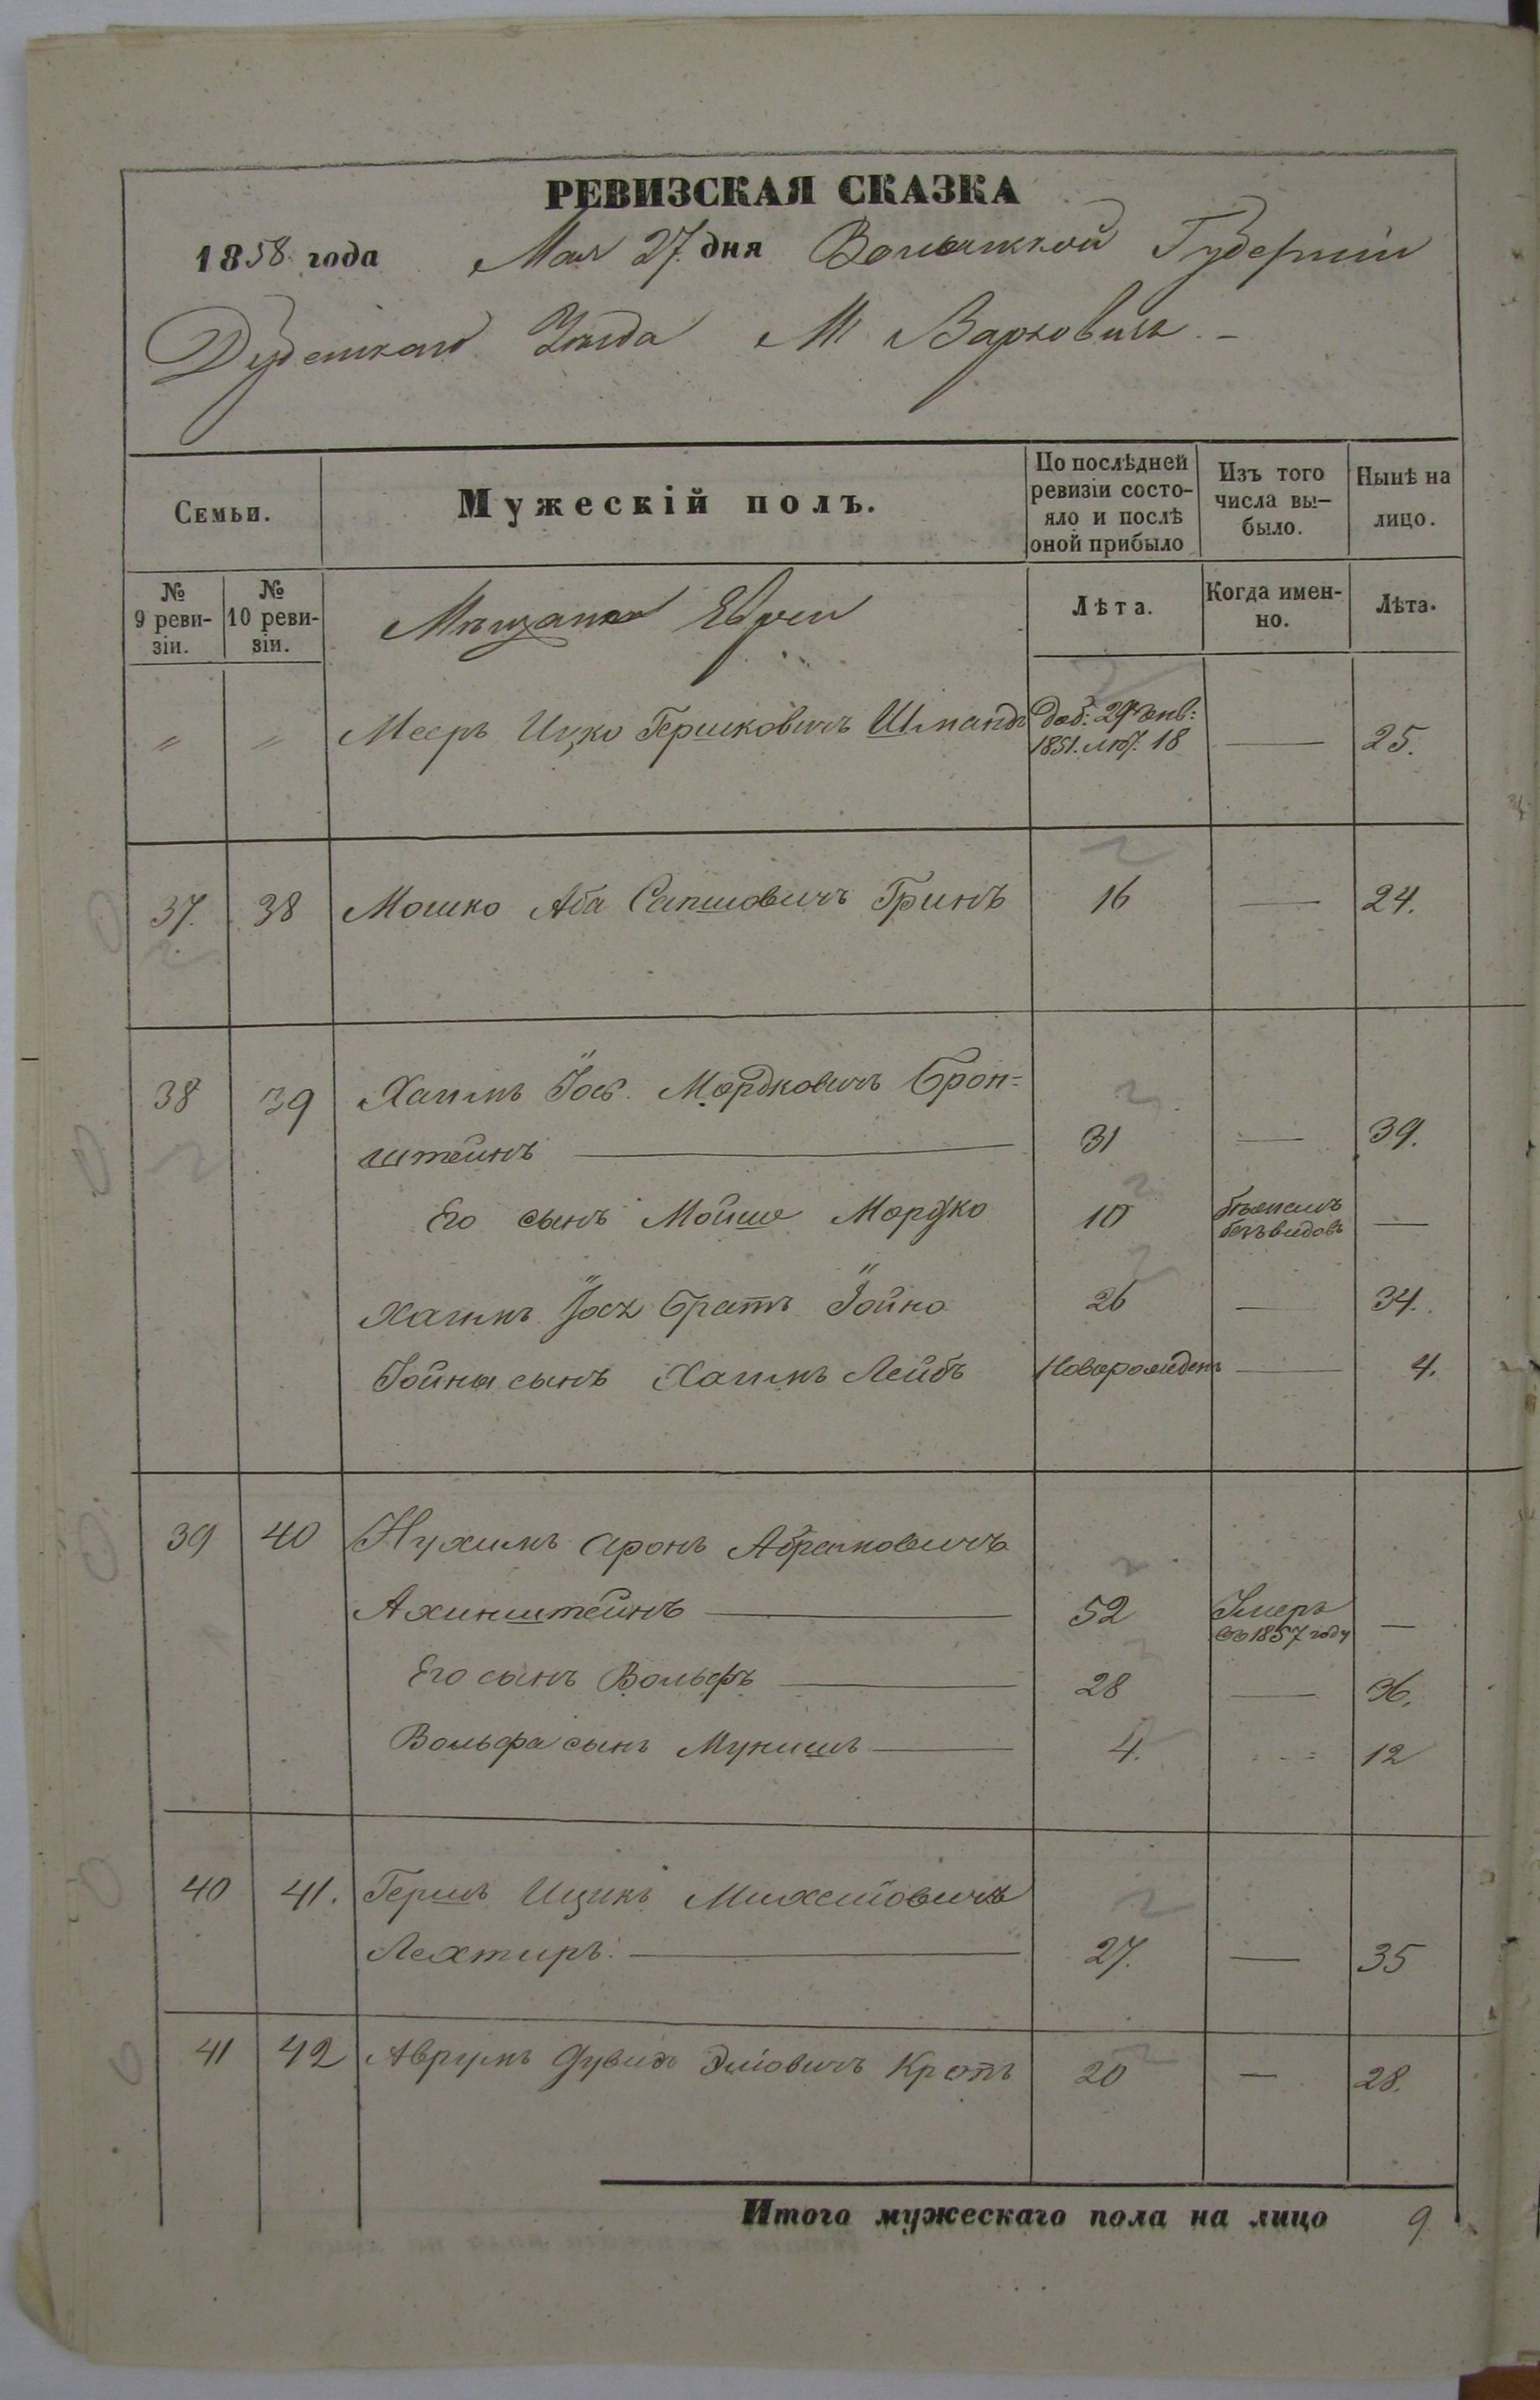 РЕВИЗСКАЯ СКАЗКА
1858 года Мая 27 дня Волынской Губерніи
Дубенскаго Уѣзда М Варковичь
Семьи.
Мужескій полъ.
По послѣдней ревизіи состо-
яло и послѣ оной прибыло
Изъ того числа вы-
было.
Нынѣ на лицо.
№ 9 реви-
зіи.
№ 10 реви-
зіи.
Мѣщане Евреи
Лѣта.
Когда имен-
но.
Лѣта.
〃 〃 Мееръ Ицко Гершковичъ
доб: 29 Янв:
1851. лѣт. 18 — 25.
37. 38 Мошко Аба Сапшовичъ Гринъ 16 — 24.
38 39 Хаимъ Іось Мордковичъ Брон=
штейнъ — 31 — 39.
Его сынъ Мойше Мордко 10 бѣжалъ
безъ видовъ —
Хаимъ Іося братъ Іойно 26 — 34.
Іойны сынъ Хаимъ Лейбъ Новорожденъ — 4.
39 40 Нухимъ Аронъ Абрамовичъ
Ахинштейнъ — 52 Умеръ
въ 1857 году —
Его сынъ Вольфъ — 28 — 36.
Вольфа сынъ Мунишъ — 4. - - = 12
40 41. Гершъ Ицикъ Михелiовичъ
Лехтиръ. — 27. — 35
41 42 Аврумъ Дувидъ Элiовичъ Кротъ 20 — 28.
Итого мужескаго пола на лицо 9